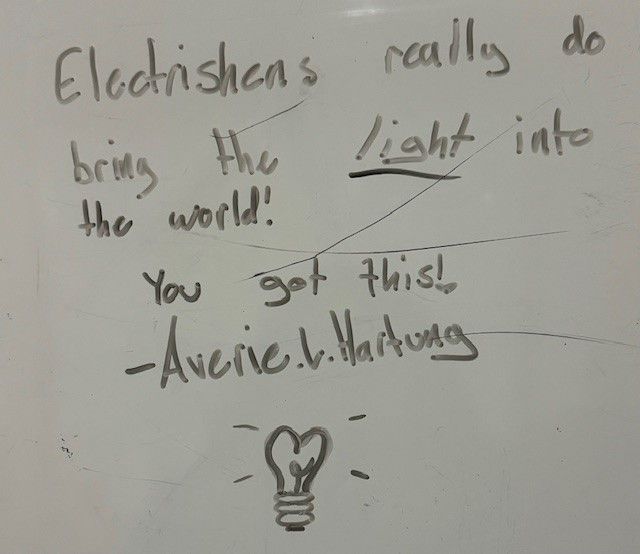 Electrishens really do
bring the light into
the world!
You got this!
-Averie.L.Hartung